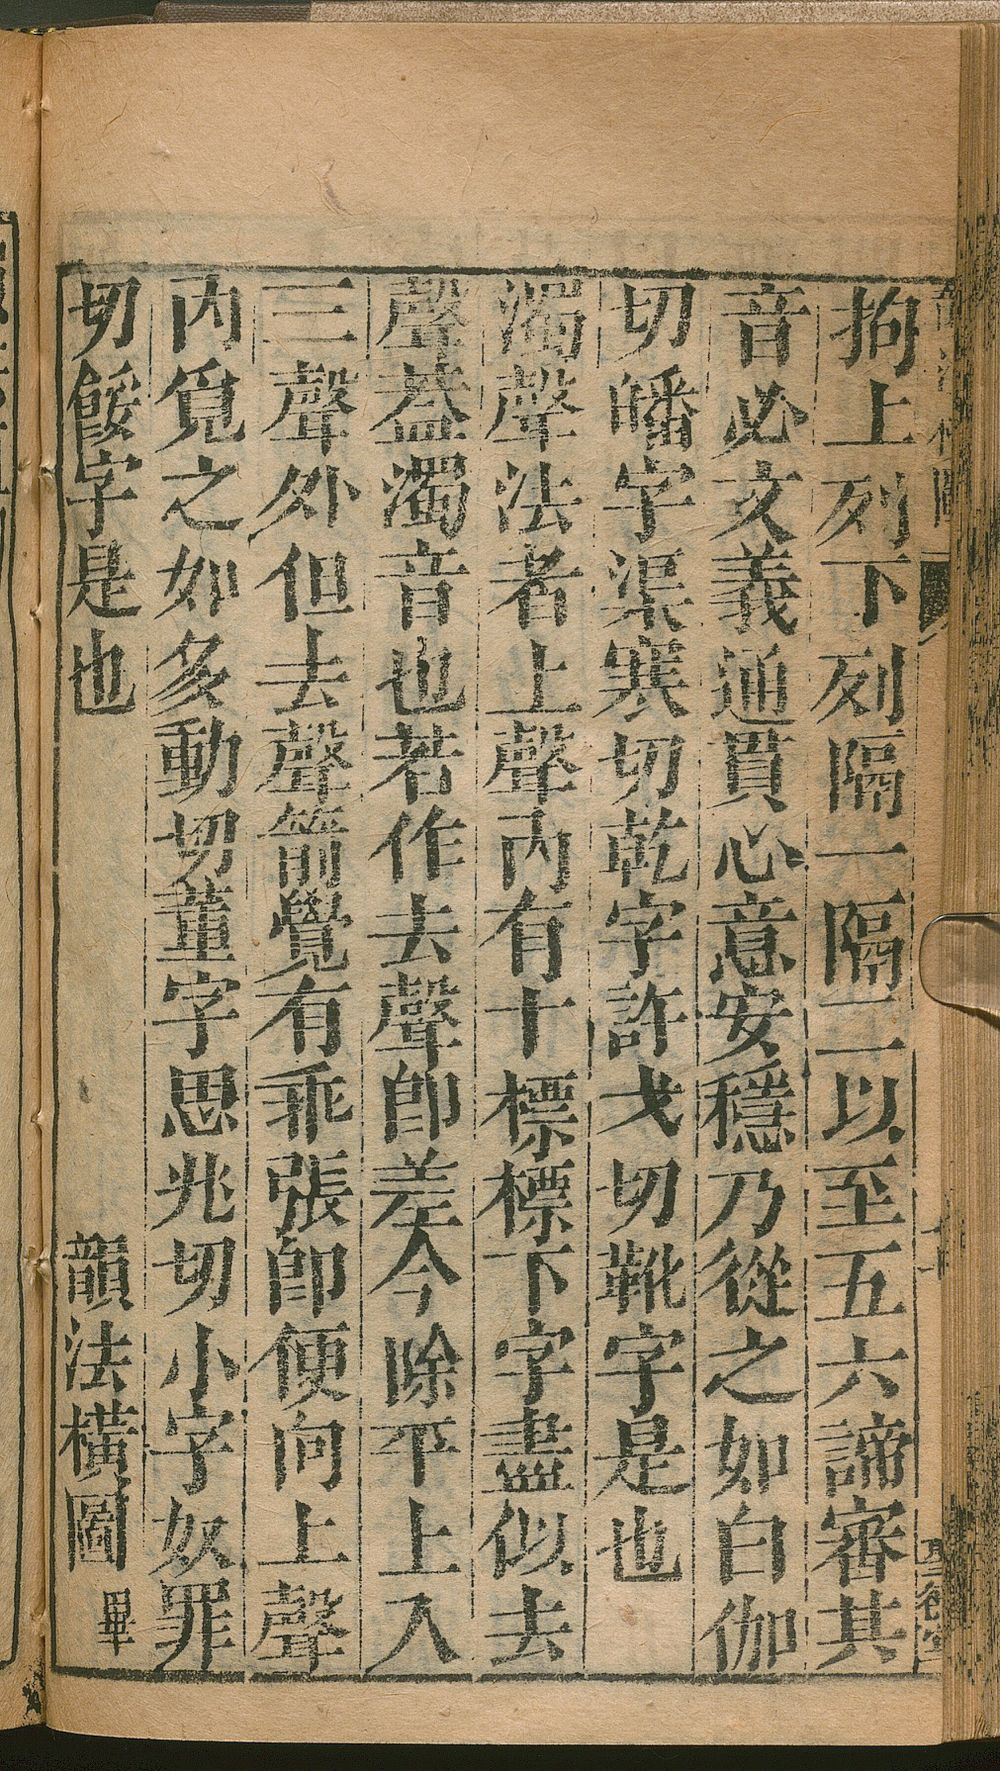 拘上列下列隔一隔二以至五六諦審其
音必文義通貫心意安穩乃從之如白伽
切皤字渠寒切乾字許戈切靴字是也
濁聲法者上聲內有十標標下字盡似去
聲葢濁音也若作去聲卽差今除平上入
三聲外但去聲箭覺有乖張卽便向上聲
內覓之如多動切董字思兆切小字奴罪
切餒字是也
韻法橫圖畢